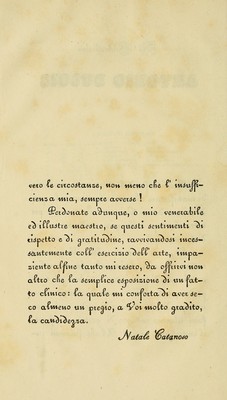 vero le circostanze, non meno che l' insuffi-
cienza mia, sempre avverse!
Perdonate adunque, o mio venerabile
ed illustre maestro, se questi sentimenti di
rispetto e di gratitudine, ravvivandosi inces-
santemente coll' esercizio dell' arte, impa-
ziente alfine tanto mi resero, da offrirvi non
altro che la semplice esposizione di un fat-
to clinico: la quale mi conforta di aver se-
co almeno un pregio, a Voi molto gradito,
la candidezza.
Natale Catanoso